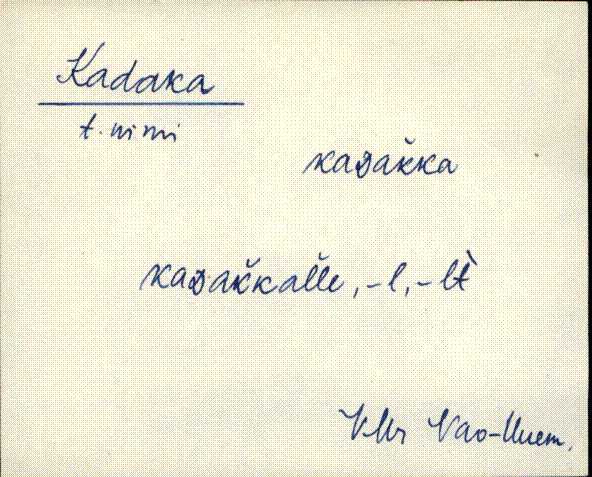 Kadaka
t. nimi
kaᴅak̆ka
kaᴅak̆kal̆le, -l, -lt̀
VMr Vao-Uuem.